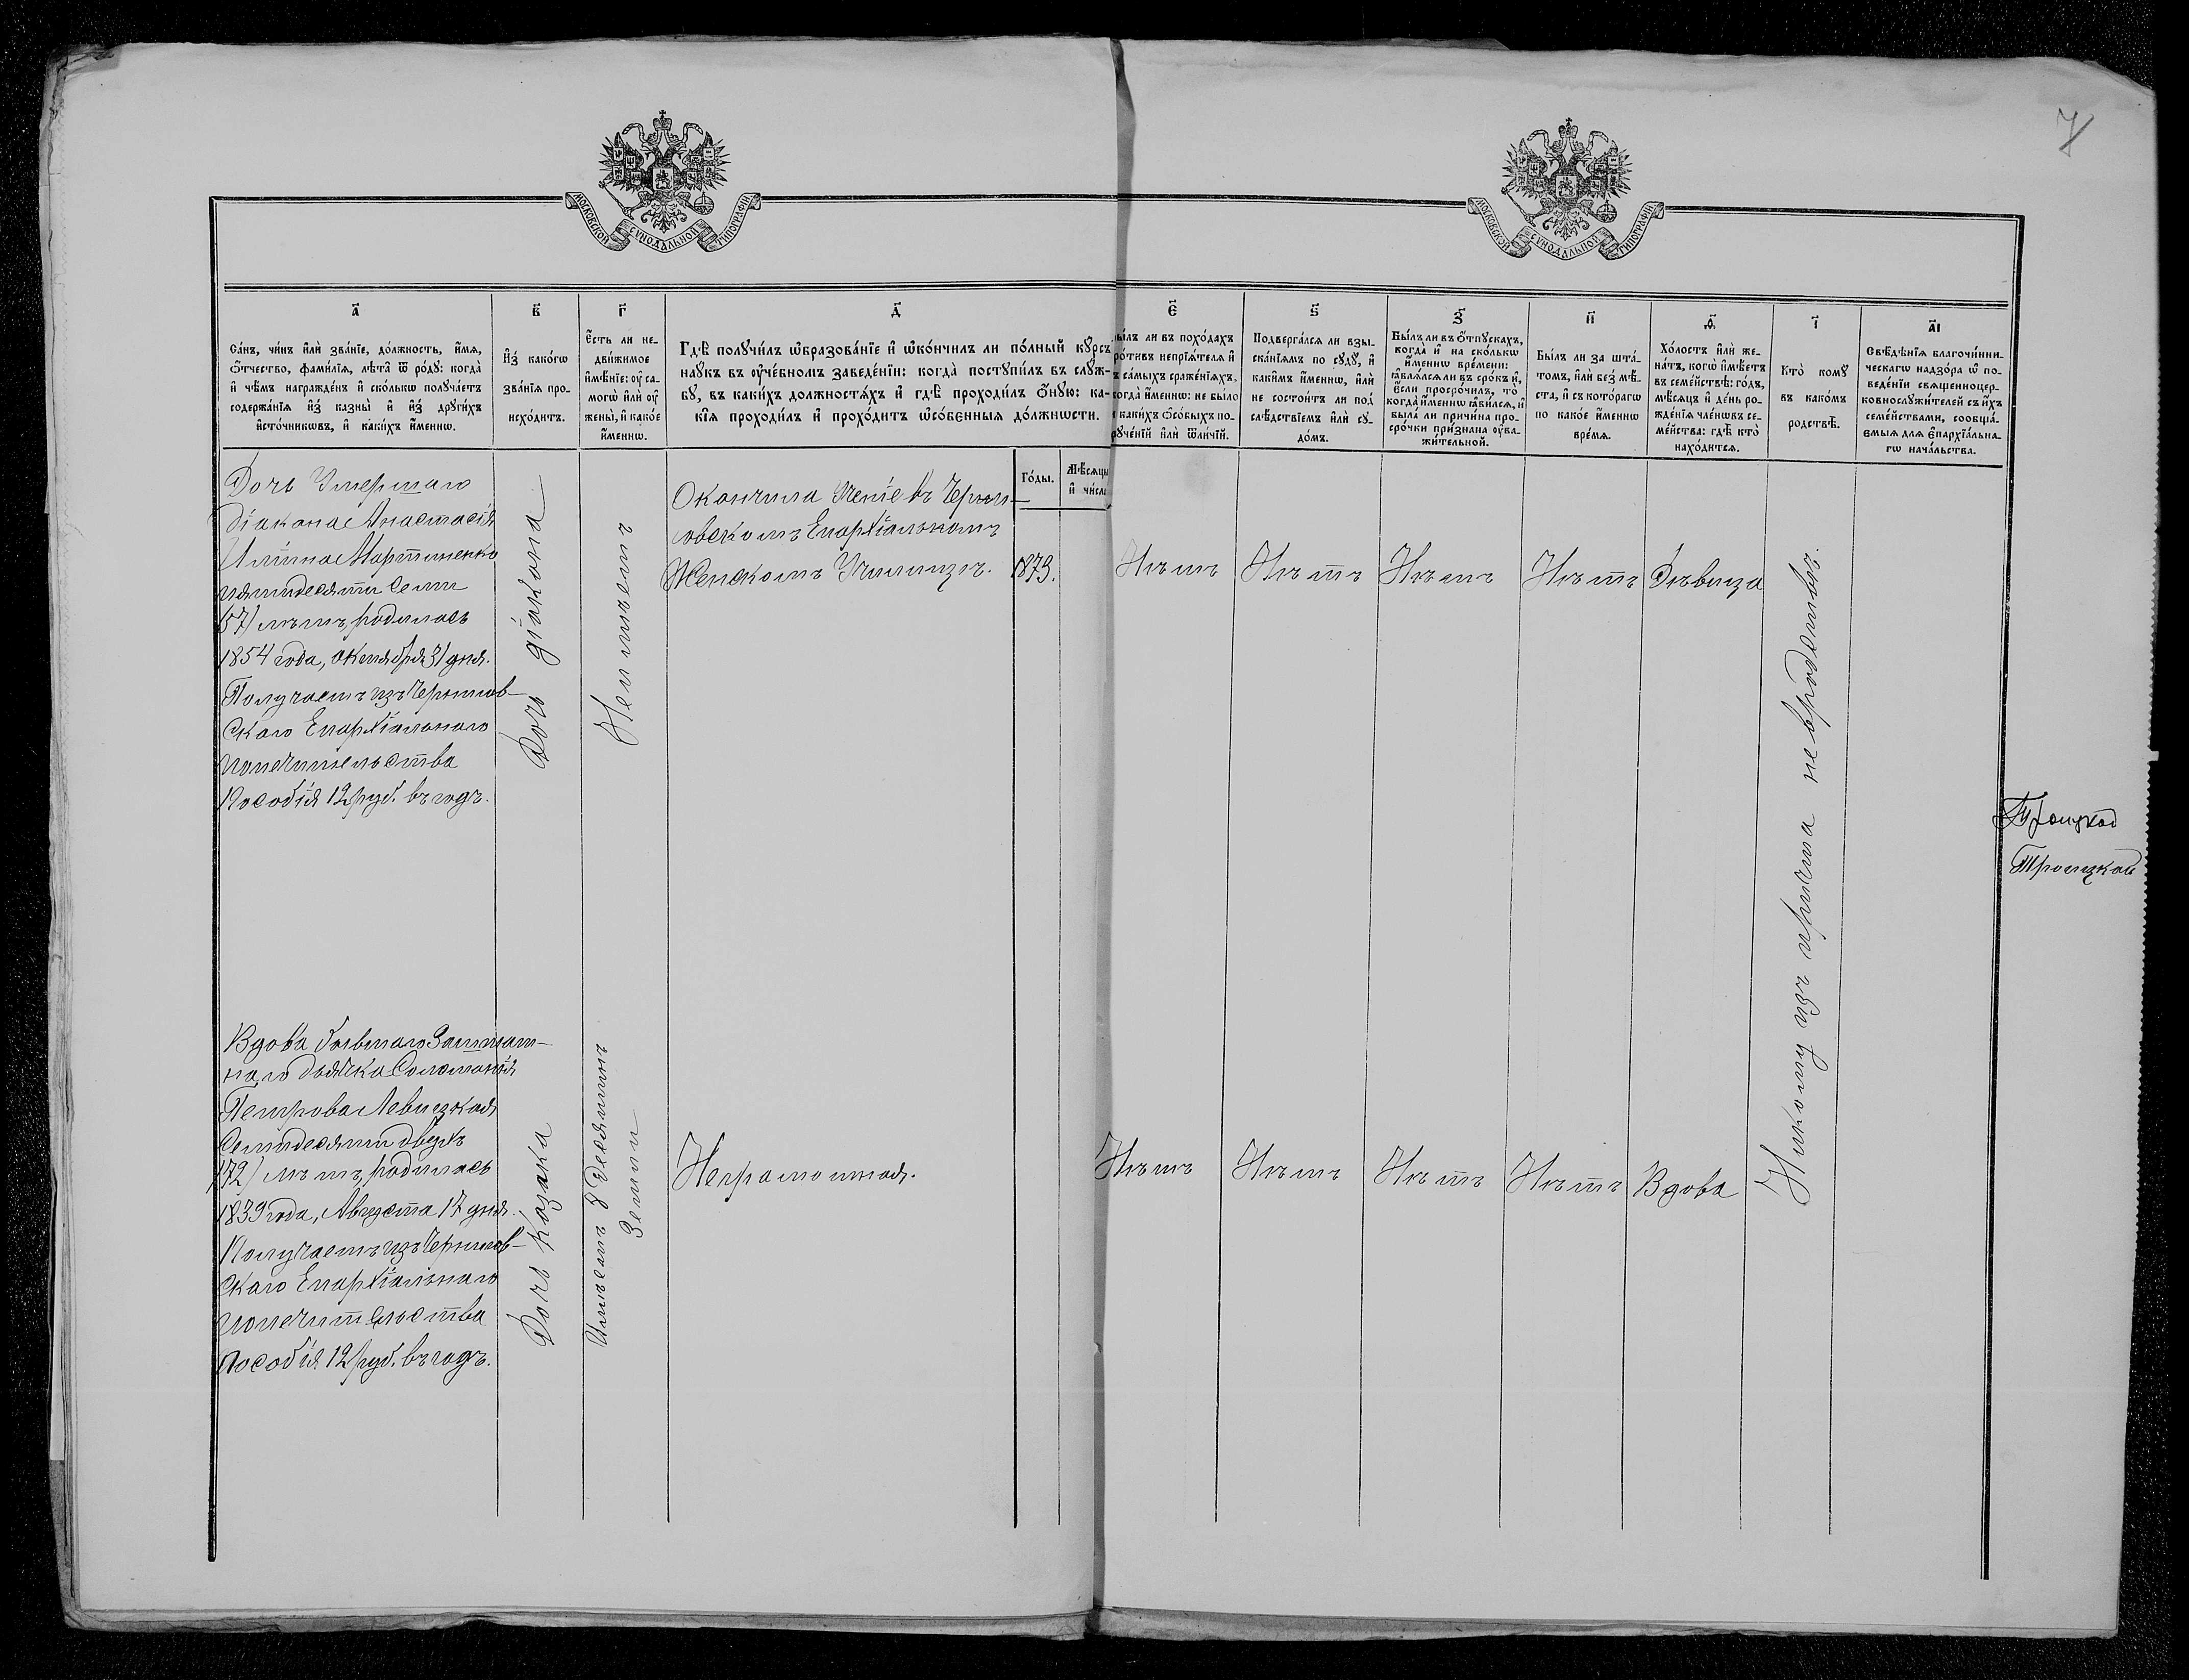 7
МОСКОВСКОЙ СУНОДАЛЬНОЙ ТИПОГРАФІИ
МОСКОВСКОЙ СУНОДАЛЬНОЙ ТИПОГРАФІИ
а҃
Са́нъ, чи́нъ и҆лѝ зва́нїе, до́лжность, и҆́мѧ,
ѻ҆́тчество, фами́лїѧ, лѣ́та ѿ ро́дꙋ: когда̀
и҆ чѣ́мъ награжде́нъ и҆ ско́лькѡ полꙋча́етъ
содержа́нїѧ и҆з̾ казны̀ и҆ и҆з̾ дрꙋги́хъ
и҆сто́чникѡвъ, и҆ каки́хъ и҆́меннѡ.
в҃
И҆з̾ како́гѡ
зва́нїѧ про-
исхо́дитъ.
г҃
Є҆́сть ли не-
дви́жимое
и҆мѣ́нїе: ᲂу҆ са-
могѡ̀ и҆лѝ ᲂу҆
жены̀, и҆ како́е
и҆́меннѡ.
д҃
Гдѣ̀ полꙋчи́лъ ѡ҆бразова́нїе и҆ ѡ҆ко́нчилъ ли по́лный кꙋ́рсъ
наꙋ́къ въ ᲂу҆че́бномъ заведе́нїи: когда̀ постꙋпи́лъ въ слꙋ́ж-
бꙋ, въ каки́хъ должностѧ́хъ и҆ гдѣ̀ проходи́лъ ѻ҆́нꙋю: ка-
кі́ѧ проходи́лъ и҆ прохо́дитъ ѡ҆со́бенныѧ до́лжнѡсти.
Го́ды.
Мѣ́сѧцы
и҆ чи́сла
є҃
бы́лъ ли въ похо́дахъ
про́тивъ непрїѧ́телѧ и҆
въ са́мыхъ сраже́нїѧхъ,
когда̀ и҆́меннѡ: не бы́ло
ли каки́хъ ѻ҆со́быхъ по-
рꙋче́нїй и҆лѝ ѿли́чїй.
ѕ҃
Подверга́лсѧ ли взы-
ска́нїѧмъ по сꙋдꙋ̀, и҆
каки́мъ и҆́меннѡ, и҆лѝ
не состои́тъ ли под̾
слѣ́дствїемъ и҆лѝ сꙋ-
до́мъ.
з҃
Бы́лъ ли въ ѻ҆́тпꙋскахъ,
когда̀ и҆ на ско́лькѡ
и҆́меннѡ вре́мени:
ꙗ҆влѧ́лсѧ ли въ сро́къ и҆,
є҆́сли просро́чилъ, то̀
когда̀ и҆́меннѡ ꙗ҆ви́лсѧ, и҆
была̀ ли причи́на про-
сро́чки при́знана ᲂу҆ва-
жи́тельной.
и҃
Бы́лъ ли за шта́-
томъ, и҆лѝ без̾ мѣ́-
ста, и҆ съ кото́рагѡ
по како́е и҆́меннѡ
вре́мѧ.
ѳ҃
Хо́лостъ и҆лѝ же-
на́тъ, когѡ̀ и҆мѣ́етъ
въ семе́йствѣ: го́дъ,
мѣ́сѧцъ и҆ де́нь ро-
жде́нїѧ чле́нѡвъ се-
ме́йства: гдѣ̀ кто̀
нахо́дитсѧ.
і҃
Кто̀ комꙋ̀
въ како́мъ
родствѣ̀.
а҃і
Свѣ́дѣнїѧ благочи́нни-
ческагѡ надзо́ра ѡ҆ по-
веде́нїи свѧщенноцер-
ковнослꙋжи́телей съ и҆́хъ
семе́йствами, сообща́-
ємыѧ длѧ є҆пархїа́льна-
гѡ нача́льства.
Дочь Умершаго
діакона Анастасія
Иліина Мартиненко
пятидесяти семи
(57) лѣтъ, родилась
1854 года, октября 31 дня.
Получаетъ изъ Чернигов-
скаго Епархіальнаго
попечительства
Пособія 12 руб. въ годъ.
Дочь діакона
Неимѣетъ
Окончила Ученіе въ Черни-
говскомъ Епархіальномъ
Женскомъ Училищѣ.
1873.
Нѣтъ
Нѣтъ
Нѣтъ
Нѣтъ
Дѣвица
Никому изъ причта не въ родствѣ.
Троицкой
Троицкой
Вдова бывшаго Заштат-
наго дьячка Соломонія
Петрова Левицкая
Семидесяти двухъ
(72) лѣтъ, родилась
1839 года, Августа 17 дня.
Получаетъ изъ Чернигов-
скаго Епархіальнаго
попечительства
Пособія 12 руб. въ годъ.
Дочь Козака
Имѣетъ 8 десятинъ
Земли
Неграмотная.
Нѣтъ
Нѣтъ
Нѣтъ
Нѣтъ
Вдова